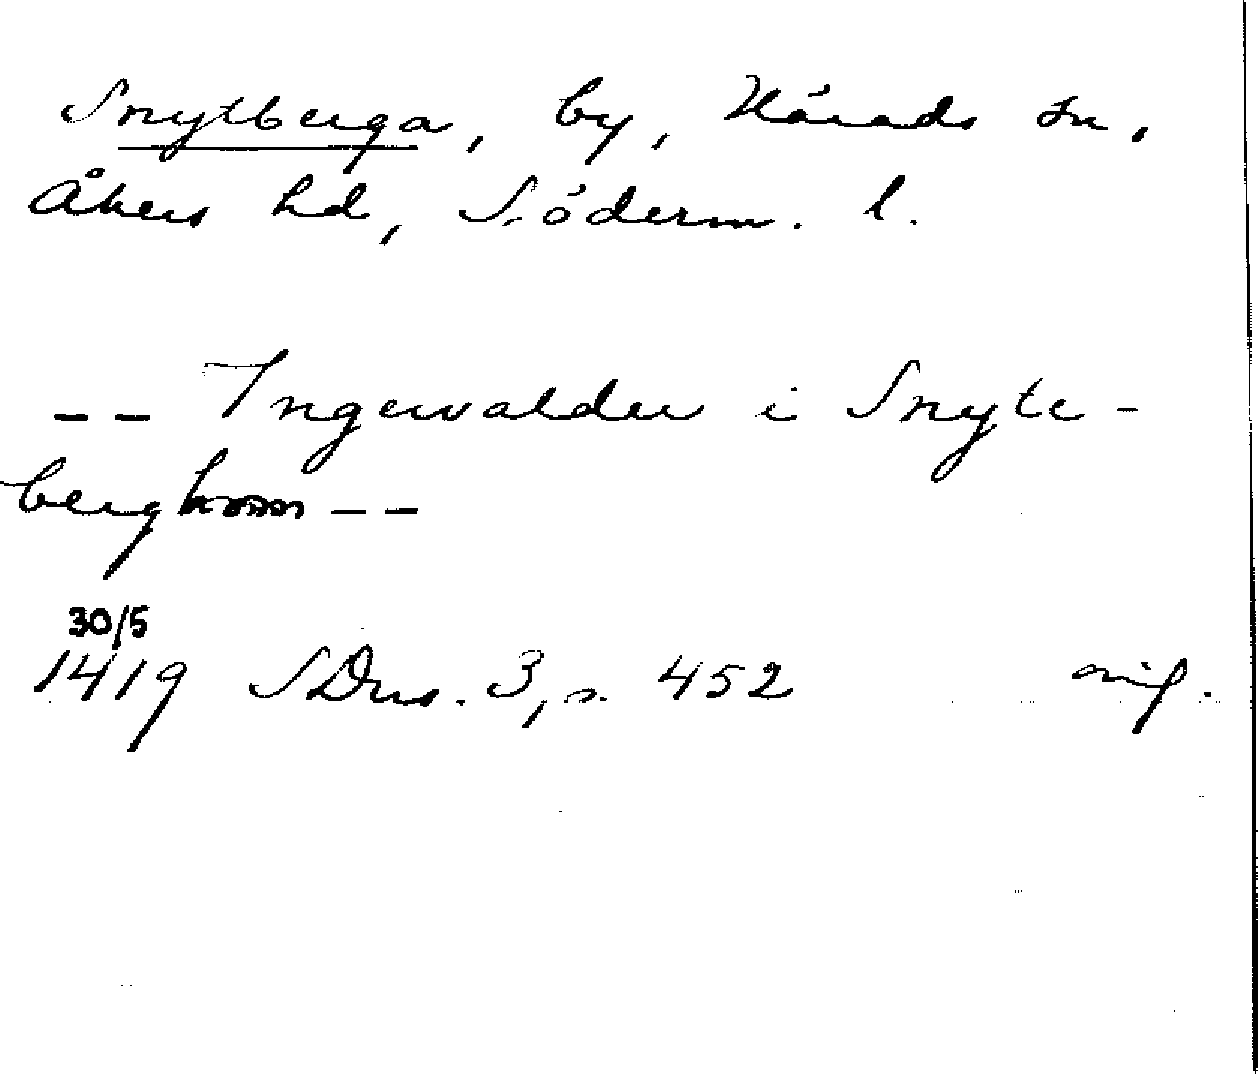 Snytberga, by, Härads sn,
Åkers hd, Söderm. l.
-- Ingewalder i Snyte-
berghom --
30/5
1419 SDns. 3, s. 452 orig.